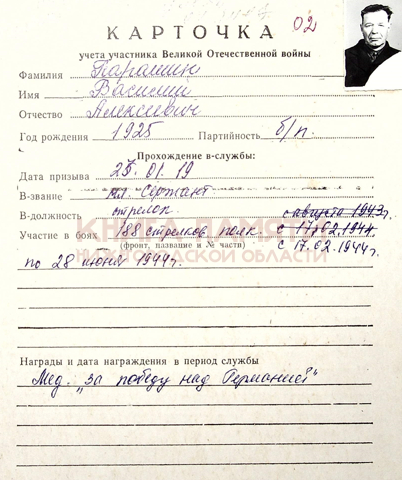 КАРТОЧКА 02
учета участника Великой Отечественной войны
Фамилия Парамшин
Имя Василий
Отчество Алексеевич
Год рождения 1925 Партийность б/п.
Прохождение в-службы:
Дата призыва 25. 01. 19
В-звание мл. Сержант
В-должность стрелок. с августа 1943г.
Участие в боях 188 стрелков полк. с 17.02.1944
(фронт, название и № части) с 17.02.1944г.
по 28 июня 1944г.
КНИГА ПАМЯТИ
НИЖЕГОРОДСКОЙ ОБЛАСТИ
Награды и дата награждения в период службы
Мед. „За победу над Германией"